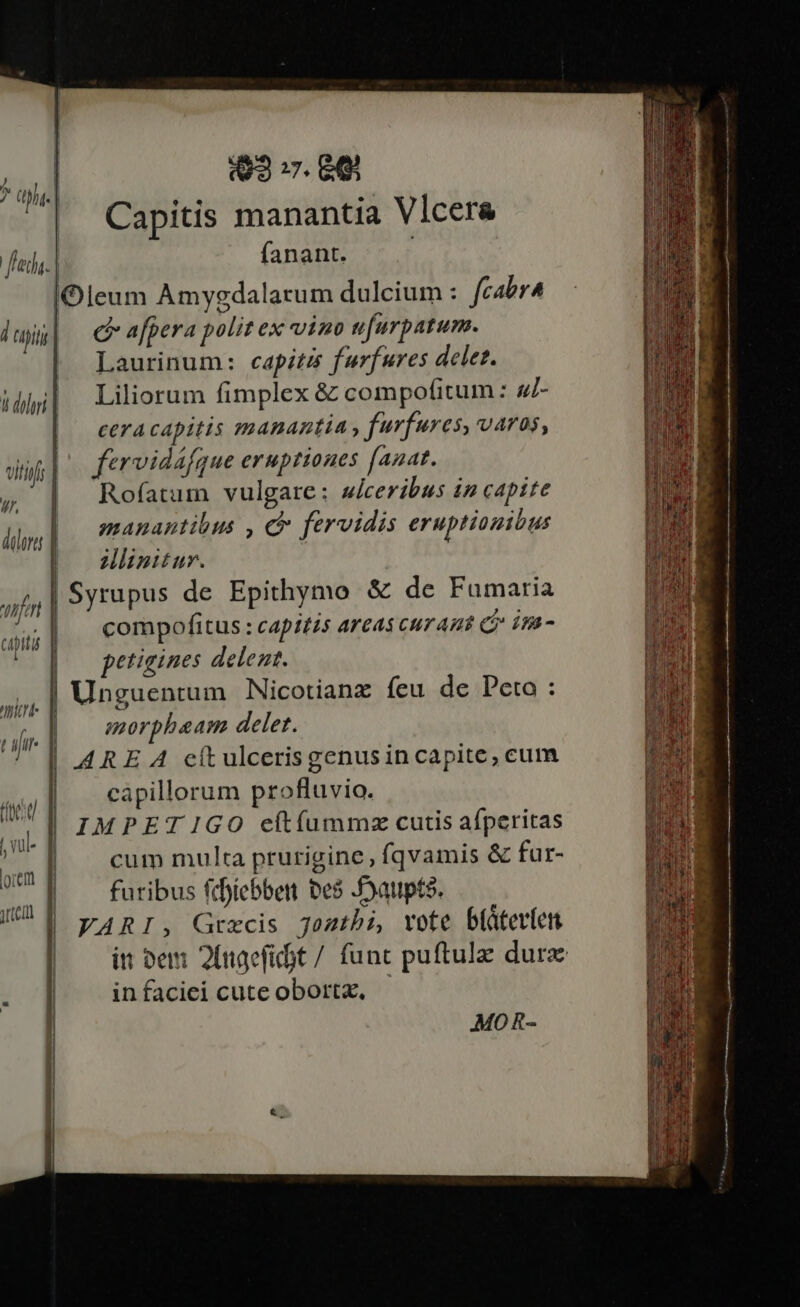 27.
Capitis manantia Vlcera
ſanant.
Oleum Amygdalarum dulcium: ſcabra
& aſpera polit ex vino uſurpatum.
Laurinum: capitis furfures delet.
Liliorum ſimplex & compoſitum: ul-
cera capitis manantia, furfures, varos,
fervidáſque eruptiones ſanat.
Roſatum vulgare: ulceribus in capite
manantibus, & fervidis eruptionibus
illinitur.
Syrupus de Epithymo & de Fumaria
compoſitus: capitis areas curant & im-
petigines delent.
Unguentum Nicotianæ ſeu de Peto:
morphæam delet.
AREA eſt ulceris genus in capite, cum
capillorum profluvio.
IMPETIGO eſt ſummæ cutis aſperitas
cum multa prurigine, ſqvamis & fur-
furibus ſchiebben des Haupts.
VARI, Græcis Jonthi, rote bläterlen
in dem Angeſicht / ſunt puſtulæ duræ
in faciei cute obortæ.
MOR-